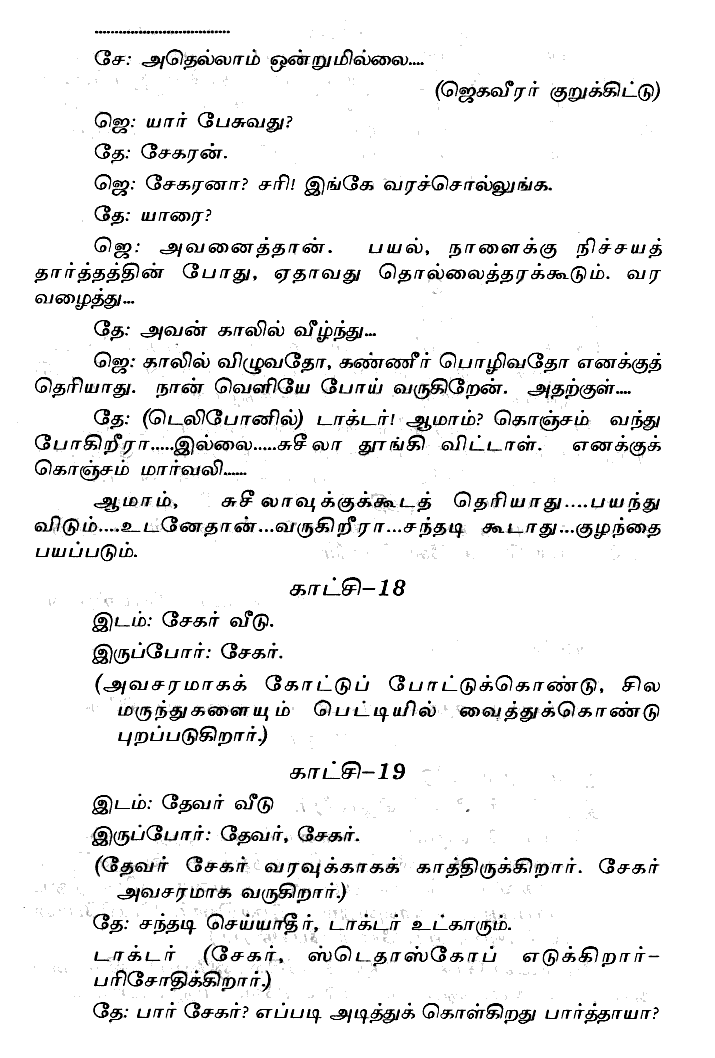 ..................................
சே: அதெல்லாம் ஒன்றுமில்லை....
(ஜெகவீரர் குறுக்கிட்டு)
ஜெ: யார் பேசுவது?
தே: சேகரன்.
ஜெ: சேகரனா? சரி! இங்கே வரச்சொல்லுங்க.
தே: யாரை?
ஜெ: அவனைத்தான். பயல், நாளைக்கு நிச்சயத்
தார்த்தத்தின் போது, ஏதாவது தொல்லைத்தரக்கூடும். வர
வழைத்து...
தே: அவன் காலில் வீழ்ந்து...
ஜெ: காலில் விழுவதோ, கண்ணீர் பொழிவதோ எனக்குத்
தெரியாது. நான் வெளியே போய் வருகிறேன். அதற்குள்....
தே: (டெலிபோனில்) டாக்டர்! ஆமாம்? கொஞ்சம் வந்து
போகிறீரா.....இல்லை.....சுசீலா தூங்கி விட்டாள். எனக்குக்
கொஞ்சம் மார்வலி......
ஆமாம், சுசீலாவுக்குக்கூடத் தெரியாது....பயந்து
விடும்....உடனேதான்...வருகிறீரா...சந்தடி கூடாது...குழந்தை
பயப்படும்.
காட்சி-18
இடம்: சேகர் வீடு.
இருப்போர்: சேகர்.
(அவசரமாகக் கோட்டுப் போட்டுக்கொண்டு, சில
மருந்துகளையும் பெட்டியில் வைத்துக்கொண்டு
புறப்படுகிறார்.)
காட்சி-19
இடம்: தேவர் வீடு
இருப்போர்: தேவர், சேகர்.
(தேவர் சேகர் வரவுக்காகக் காத்திருக்கிறார். சேகர்
அவசரமாக வருகிறார்.)
தே: சந்தடி செய்யாதீர், டாக்டர் உட்காரும்.
டாக்டர் (சேகர், ஸ்டெதாஸ்கோப் எடுக்கிறார்-
பரிசோதிக்கிறார்.)
தே: பார் சேகர்? எப்படி அடித்துக் கொள்கிறது பார்த்தாயா?